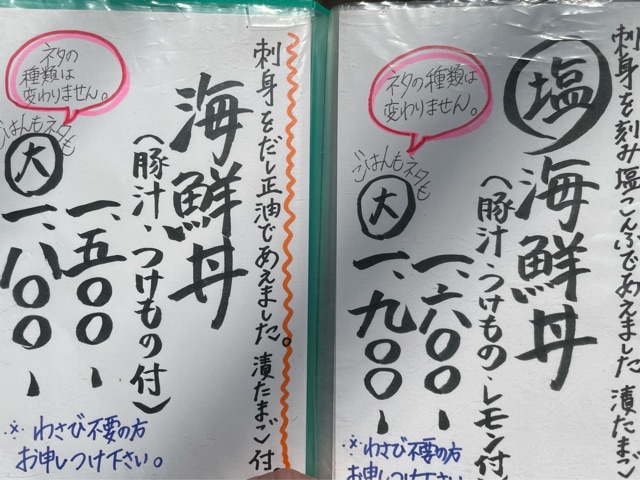 刺身をだし正油であえました。漬たまご付
海鮮丼
(豚汁・つけもの付)
一、五〇〇ー
ごはんもネタも
大
一、八〇〇ー
ネタの
種類は
変わりません。
※わさび不要の方
お申しつけ下さい。
刺身を刻み塩こんぶであえました 漬たま
塩海鮮丼
(豚汁・つけもの・レモン付
一、六〇〇ー
ごはんもネタも
大
一、九〇〇ー
ネタの種類は
変わりません。
※わさび不要の方
お申しつけ下さい。